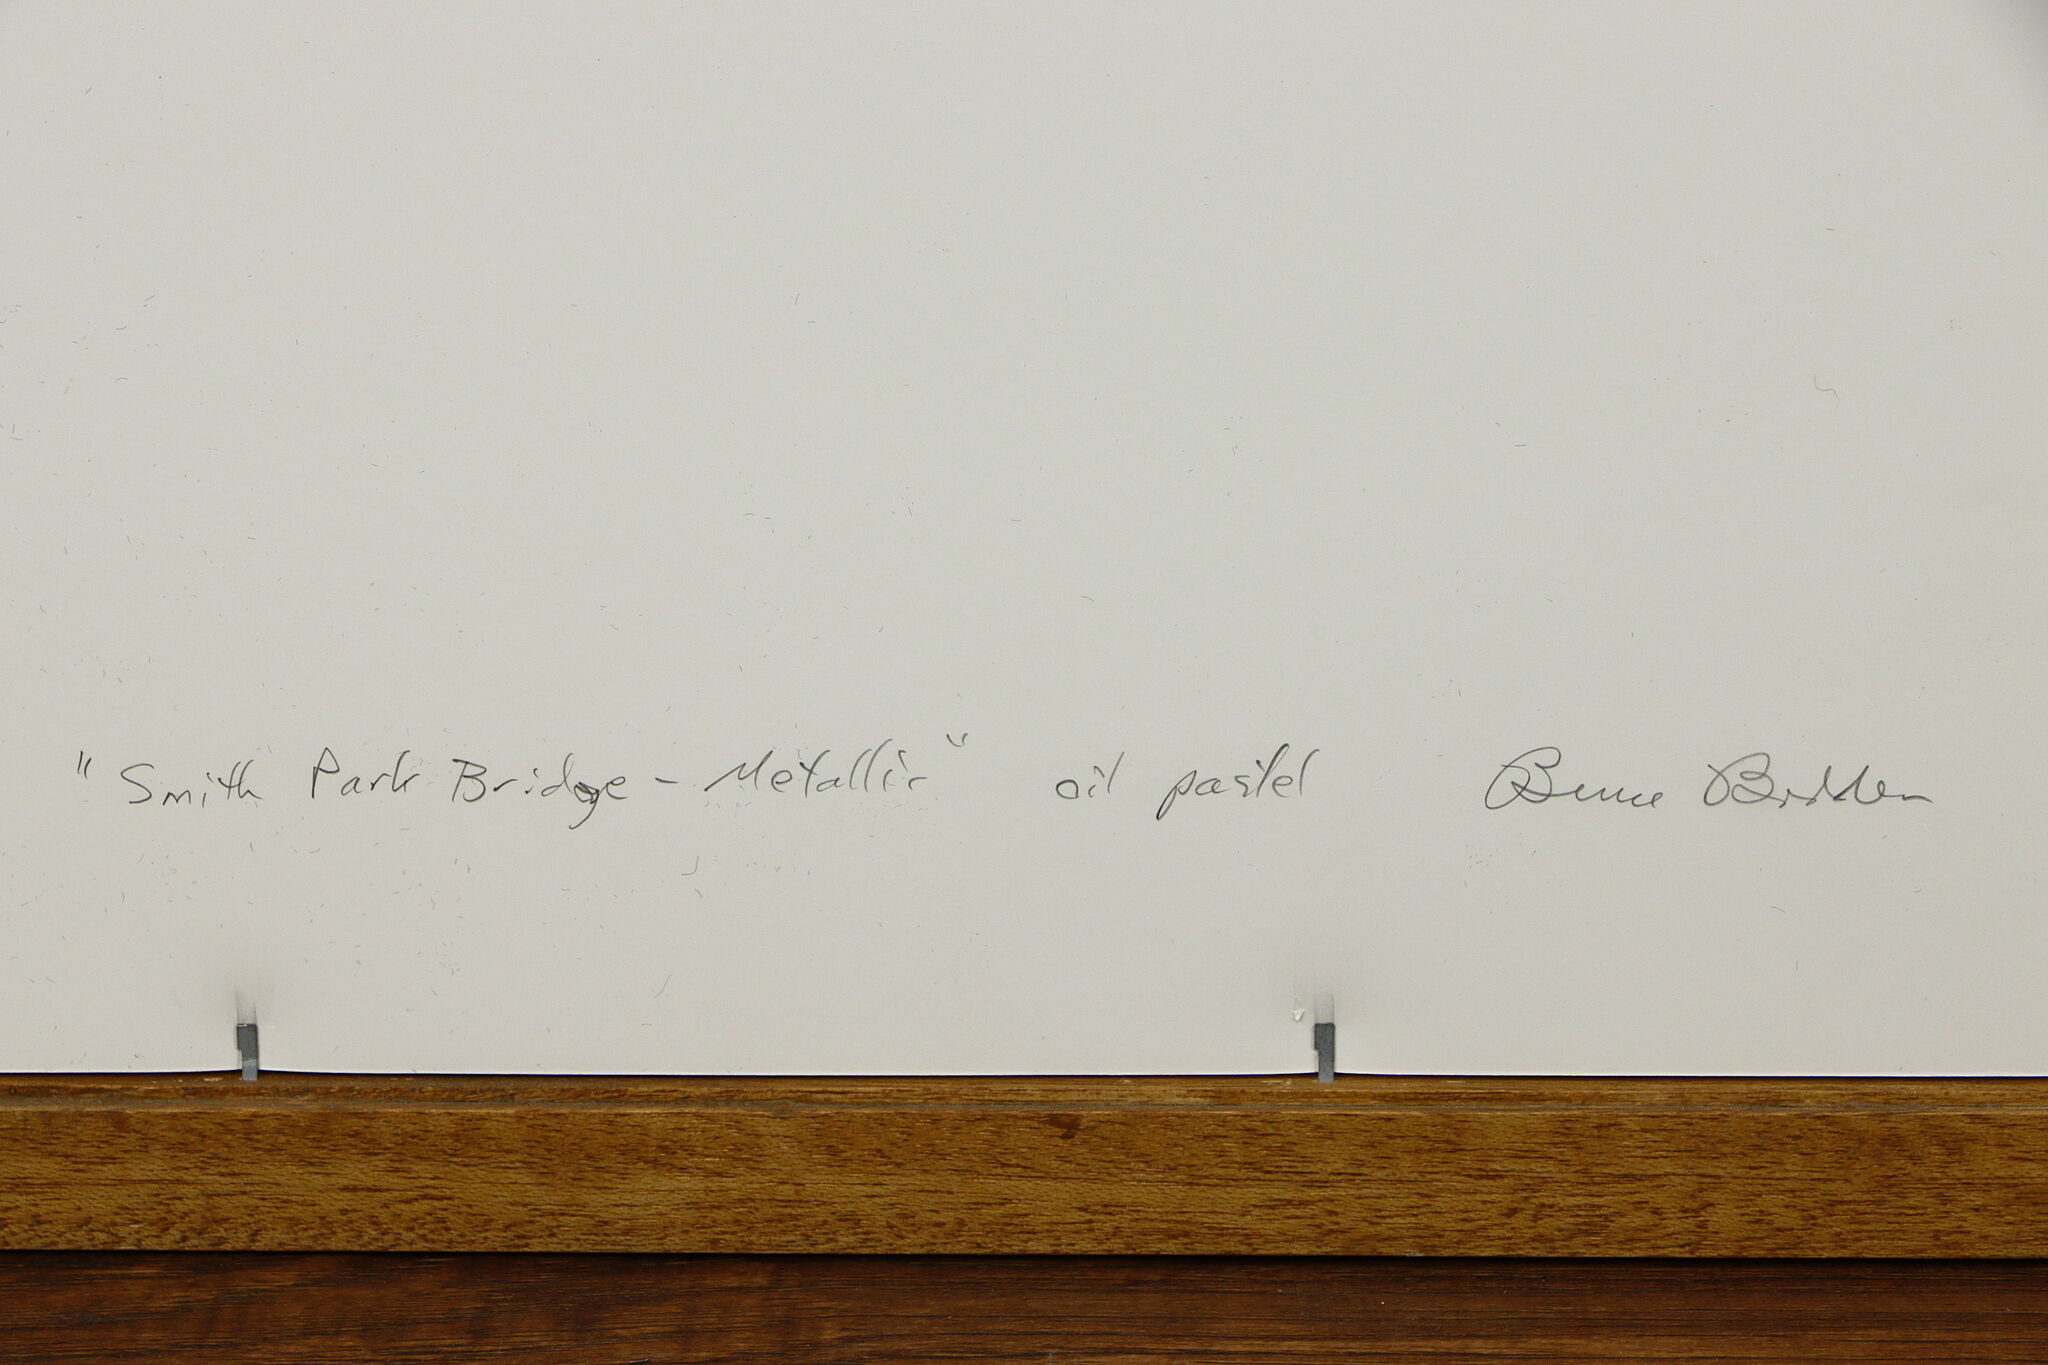 "Smith Park Bridge - Metallic" oil pastel Bruce Bodden